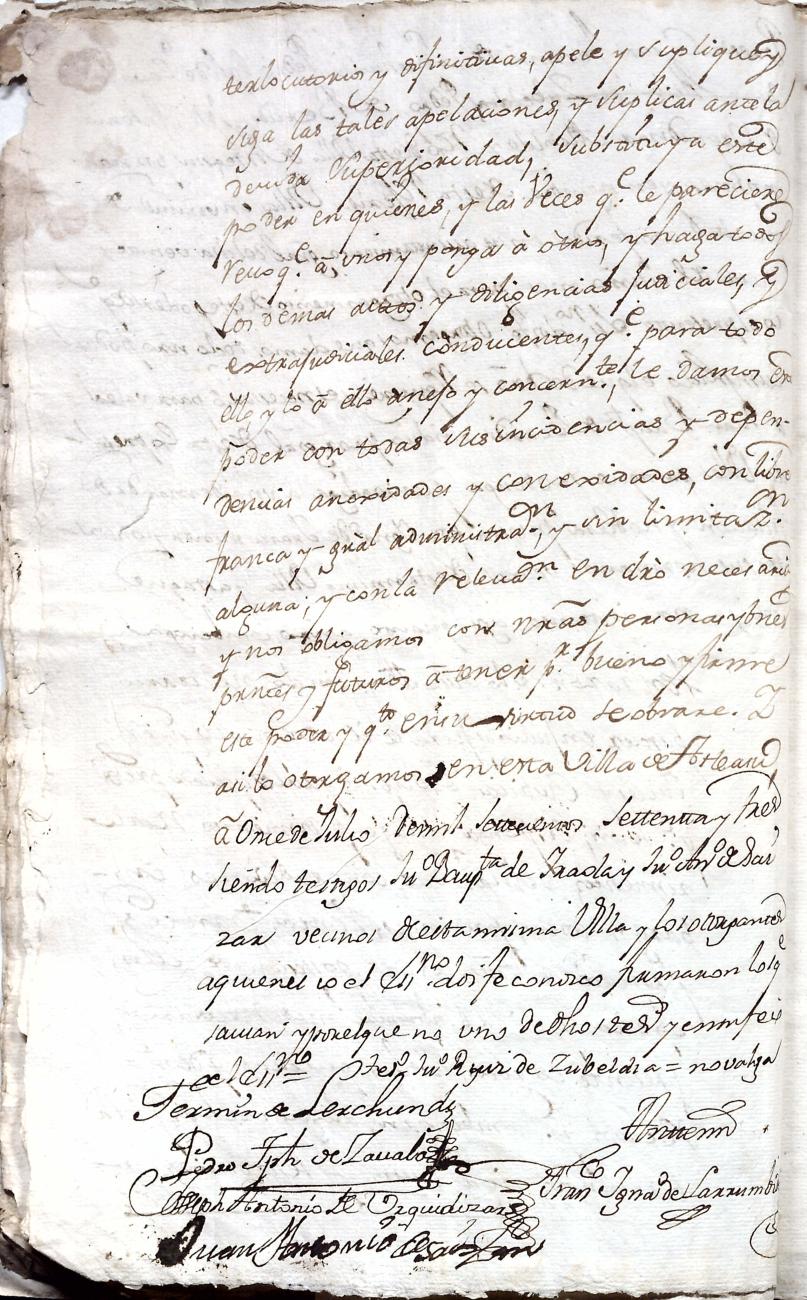 terlocutorios y difinitivas, apele y suplique y
siga las tales apelaciones, y suplicas ante la
devida Superioridad, substituya este
poder en quienes, y las Veces q.e le pareciere
revoq.e à, unos y ponga à òtros, y haga todos
los demas actos y diligencias judiciales, y
extrajudiciales conducentes, q.e para todo
ello y lo à ello anejo y concern.te, le damos
poder con todas sus incidencias y depen-
dencias anexidades y conexidades, con libre
franca y gral administraz.n, y sin limitaz.n
alguna; y con la relevaz.n en dro necesaria
y nos obligamos con nras personas y bnes
prntes y futuros à tener p.r bueno y firme
este poder y q.to en su virtud se obrare. Y
asi lo otorgamos en esta Villa de Asteasu
à Once de Julio de mil setecientos settenta y tres
siendo testigos Ju.o Baup.ta de y Ju.o An.o de Sai
zar vecinos de esta misma Villa y los otorgantes
a quienes io el ess.no doi fe conozco firmaron los q.e
savian y por el que no uno de dhos tes y en fee
de el ess.no = tes.o Ju.o Ruiz de Zubeldia = no valga
Fermin de Lerchundi
Antemi
Pedro Jph de Zavala
Fran.co Igna.o de Larrumbi
Joseph Antonio de Urquidizar
Juan Antonio de Saizar